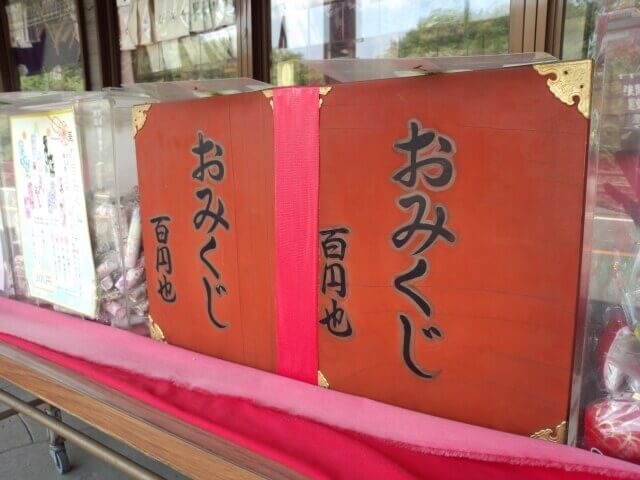 おみくじ
百円也
おみくじ
百円也